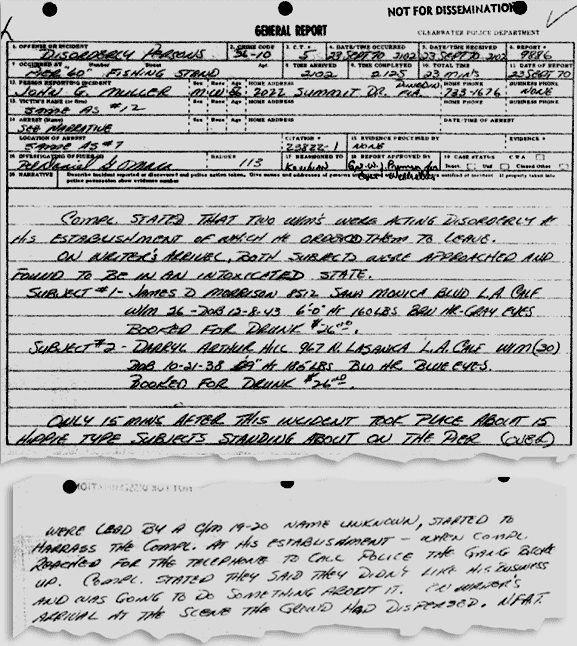 NOT FOR DISSEMINATION
GENERAL REPORT
CLEARWATER POLICE DEPARTMENT
1. OFFENSE OR INCIDENT 2. CRIME CODE 3. C.T. # 4. DATE/TIME OCCURRED 5. DATE/TIME RECEIVED 6. REPORT #
DISORDERLY PERSONS 36-10 5 23 SEPT 70 2102 23 SEPT 70 2102 9886
7 OCCURRED AT Number Street Apt 8 TIME ARRIVED 9. TIME COMPLETED 10. TOTAL TIME 11 DATE OF REPORT
PIER 60" FISHING STAND 2102 2125 23 MINS 23 SEPT 70
12. PERSON REPORTING INCIDENT Sex Race Age HOME ADDRESS HOME PHONE BUSINESS PHONE
JOHN G. MULLER 2022 SUMMIT DR. FLA. 733-1676 NONE
13. VICTIM'S NAME (or firm) Sex Race Age HOME ADDRESS HOME PHONE BUSINESS PHONE
SAME AS #12
14 ARREST (Name) Sex Race Age HOME ADDRESS HOME PHONE BUSINESS PHONE
SEE NARRATIVE
LOCATION OF ARREST CITATION # 15 EVIDENCE PROCESSED BY EVIDENCE #
SAME AS #7 23822-1 NONE
16 INVESTIGATING OFFICER(S) BADGE# 17 REASSIGNED TO 18 REPORT APPROVED BY 19 CASE STATUS C W A
113 Inact Unf Closed Other
20 NARRATIVE Describe incident reported or discovered and police action taken.
COMPL. STATED THAT TWO W/M'S WERE ACTING DISORDERLY AT
HIS ESTABLISHMENT OF WHICH HE ORDERED THEM TO LEAVE.
ON WRITER'S ARRIVEL, BOTH SUBJECTS WERE APPROACHED AND
FOUND TO BE IN AN INTOXICATED STATE.
SUBJECT #1- JAMES D MORRISON 8512 SANA MONICA BLVD L.A. CALF
W/M 26 - DOB 12-8-43 6'0" HT 160 LBS BRN HR-GRAY EYES
BOOKED FOR DRUNK $26.00.
SUBJECT #2 - DARRYL ARTHUR HILL 967 N. LASANKA L.A. CALF W/M (30)
DOB 10-21-38 HT 186 LBS BLO HR BLUE EYES.
BOOKED FOR DRUNK $26.00.
ONLY 15 MINS AFTER THIS INCIDENT TOOK PLACE ABOUT 15
HIPPIE TYPE SUBJECTS STANDING ABOUT ON THE PIER (OVER)
WERE LEAD BY A C/M 19-20 NAME UNKNOWN, STARTED TO
HARRASS THE COMPL. AT HIS ESTABLISHMENT - WHEN COMPL.
REACHED FOR THE TELEPHONE TO CALL POLICE THE GANG BROKE
UP. COMPL. STATED THEY SAID THEY DIDN'T LIKE HIS BUSINESS
AND WAS GOING TO DO SOMETHING ABOUT IT. ON WRITER'S
ARRIVAL AT THE SCENE THE GROUP HAD DISPERSED. N.F.A.T.